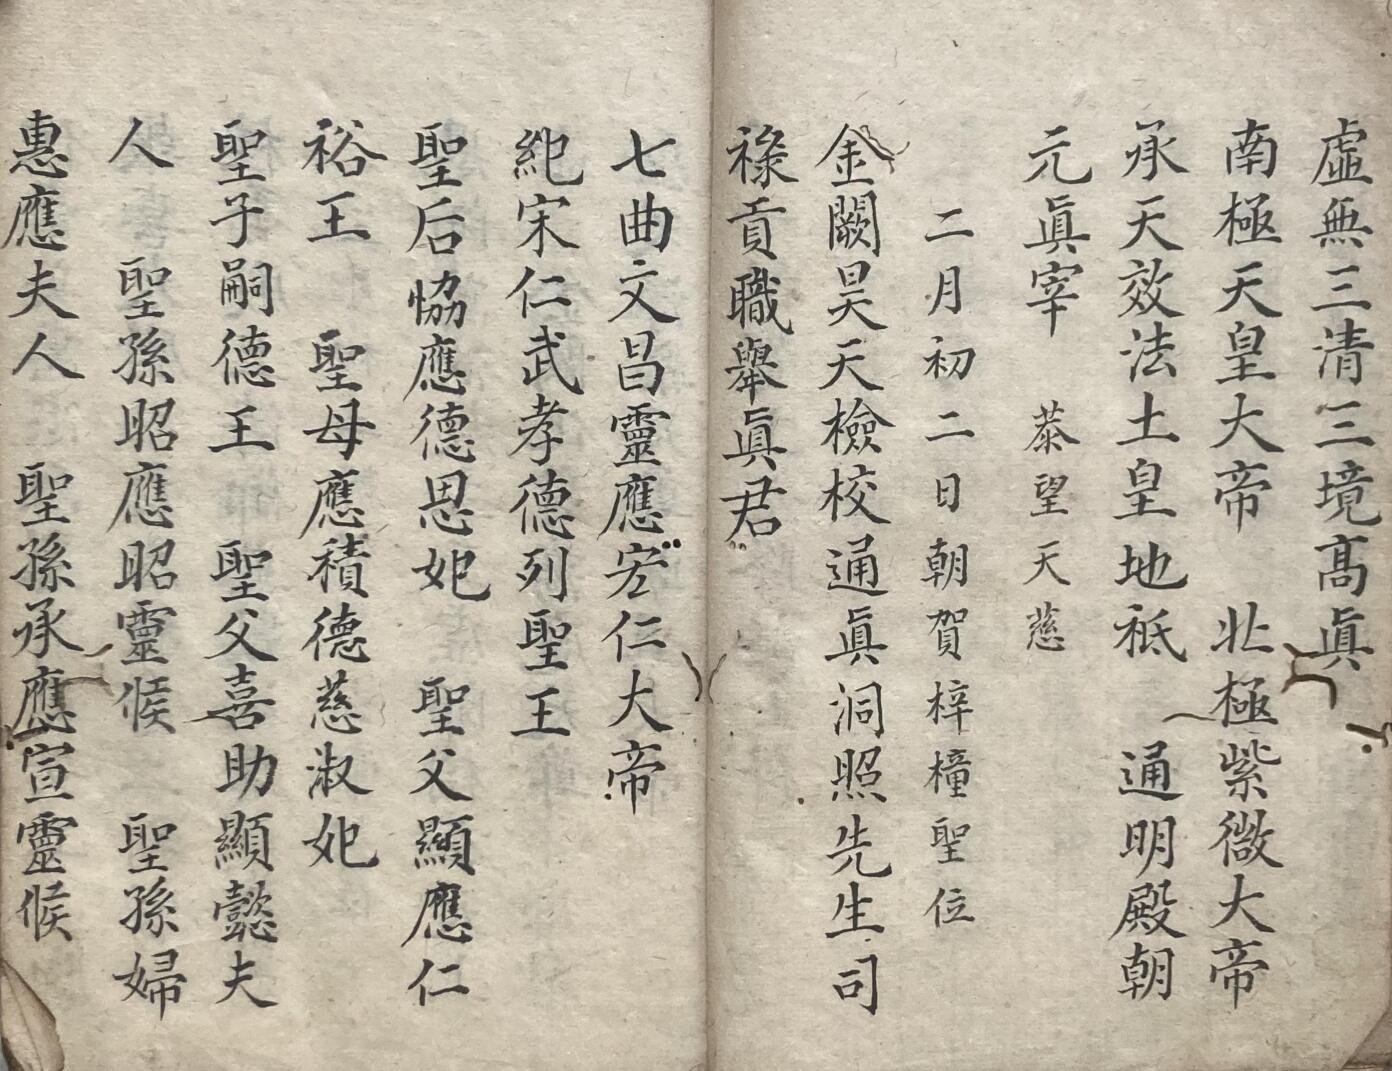 虛無三清三境髙眞
南極天皇大帝　北極紫微大帝
承天效法土皇地祇　通明殿朝
元眞宰　恭望天慈
二月初二日朝賀梓橦聖位
金闕昊天檢校通眞洞照先生司
祿貢職舉眞君
七曲文昌靈應宏仁大帝
宋仁武孝德列聖王
聖后協應德思妃　聖父顯應仁
裕王　聖母應積德慈淑妃
聖子嗣德王　聖父喜助顯懿夫
人　聖孫昭應昭靈候　聖孫婦
惠應夫人　聖孫承應宣靈候